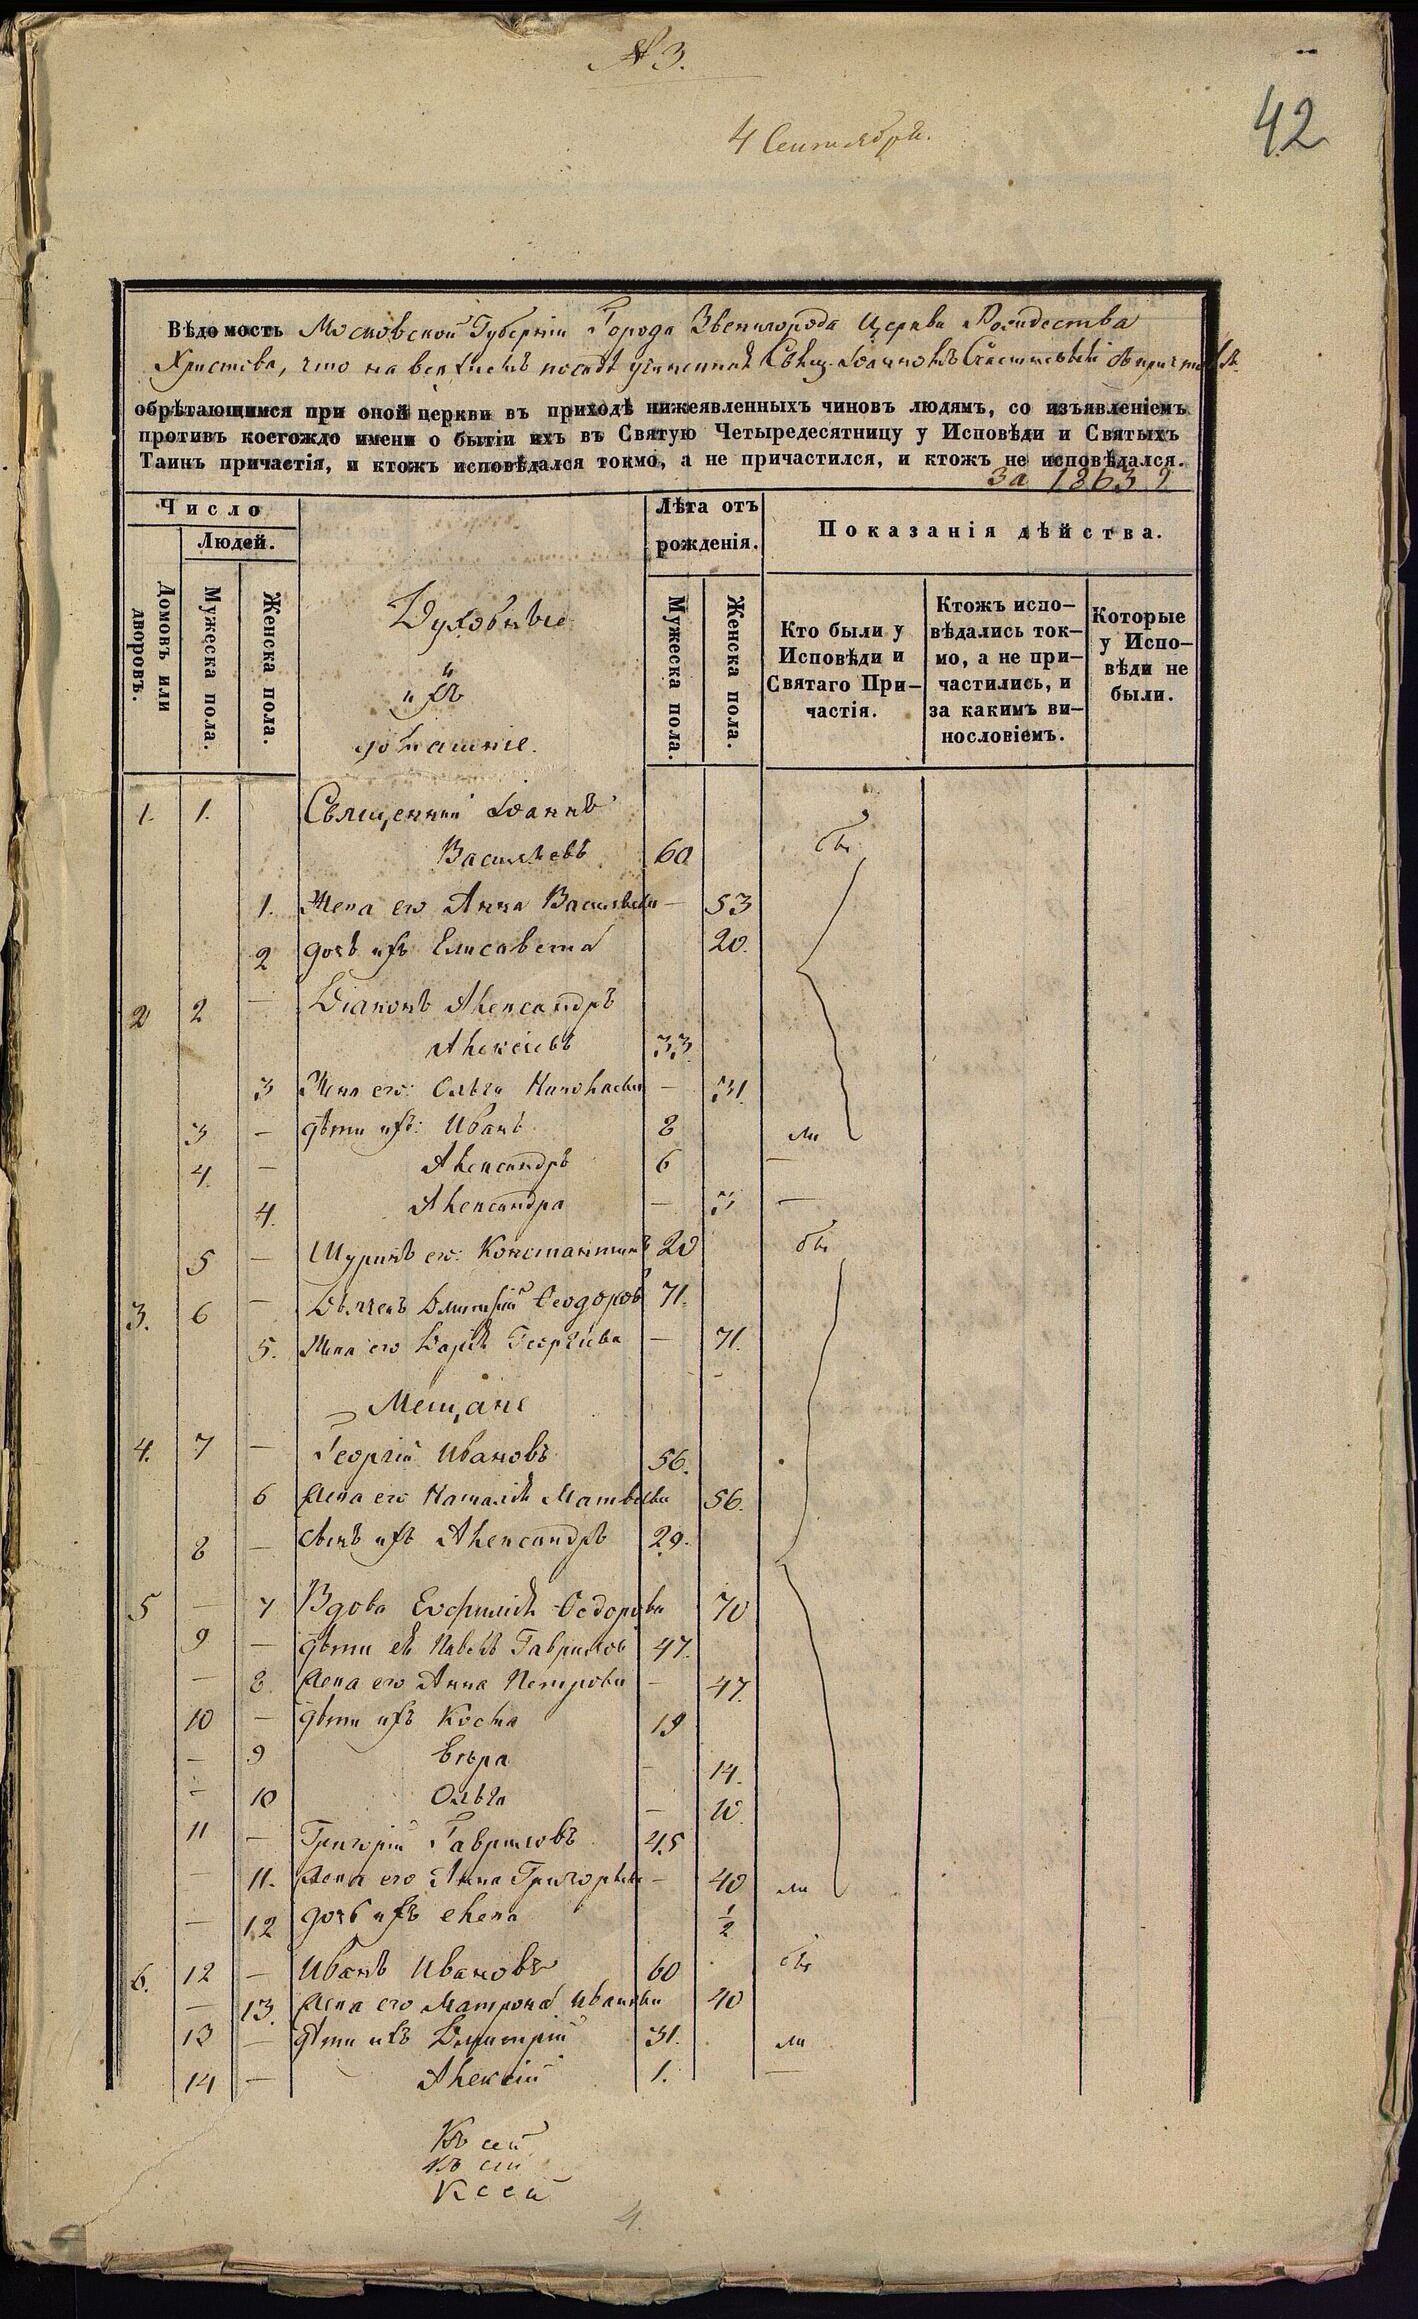 № 3.
4 Сентября.
42
Вѣдомость Московской Губерніи Города Звенигорода Церкви Рождества
Христова, что на верхнемъ посадѣ Свящ. Іоанномъ съ причтомъ
обрѣтающимся при оной церкви въ приходѣ нижеявленныхъ чиновъ людямъ, со изъявленіемъ
противъ коегождо имени о бытіи ихъ въ Святую Четыредесятницу у Исповѣди и Святыхъ
Таинъ причастія, и ктожъ исповѣдался токмо, а не причастился, и ктожъ не исповѣдался.
За 1863 г
Число
Людей.
Домовъ или дворовъ.
Мужеска пола.
Женска пола.
Духовные
и
ихъ
домашніе.
Лѣта отъ рожденія.
Мужеска пола.
Женска пола.
Показанія дѣйства.
Кто были у Исповѣди и Святаго При-частія.
Ктожъ испо-вѣдались ток-мо, а не при-частились, и за какимъ ви-нословіемъ.
Которые у Испо-вѣди не были.
1. 1. Священник Іоаннъ
Васильевъ 60 бы
1. Жена его Анна Васильева — 53
2 дочь ихъ Елисавета 20.
2 2 — Діаконъ Александръ
Алексѣевъ 33.
3 Жена его: Ольга Николаева — 31.
3 — дѣти ихъ: Иванъ 8 мл
4. — Александръ 6 —
4. Александра — 3 —
5 — Шуринъ его: Константинъ 20 бы
3. 6 — Дмитрій Ѳеодоров 71.
5. Жена его Дарія Георгіева — 71.
Мещане
4. 7 — Георгій Ивановъ 56.
6 Жена его Наталія Матвѣева 56.
8 — сынъ ихъ Александръ 29.
5 — 7 Вдова Евфимія Ѳедорова 70
9 — дѣти ея Павелъ Гаврилов 47.
— 8. Жена его Анна Петрова — 47.
10 — дѣти ихъ Косма 19
— 9 Вѣра — 14.
— 10 Ольга — 10.
11 — Григорій Гавриловъ 45
— 11. Жена его Анна Григорьева — 40 мл
— 12 дочь ихъ Елена 1/2
6. 12 — Иванъ Ивановъ 60 бы
— 13. Жена его Матрона Иванова 40
13 — дѣти ихъ Дмитрій 31. мл
14 — Алексій 1. —
Къ сей
къ сей
К сей
4.